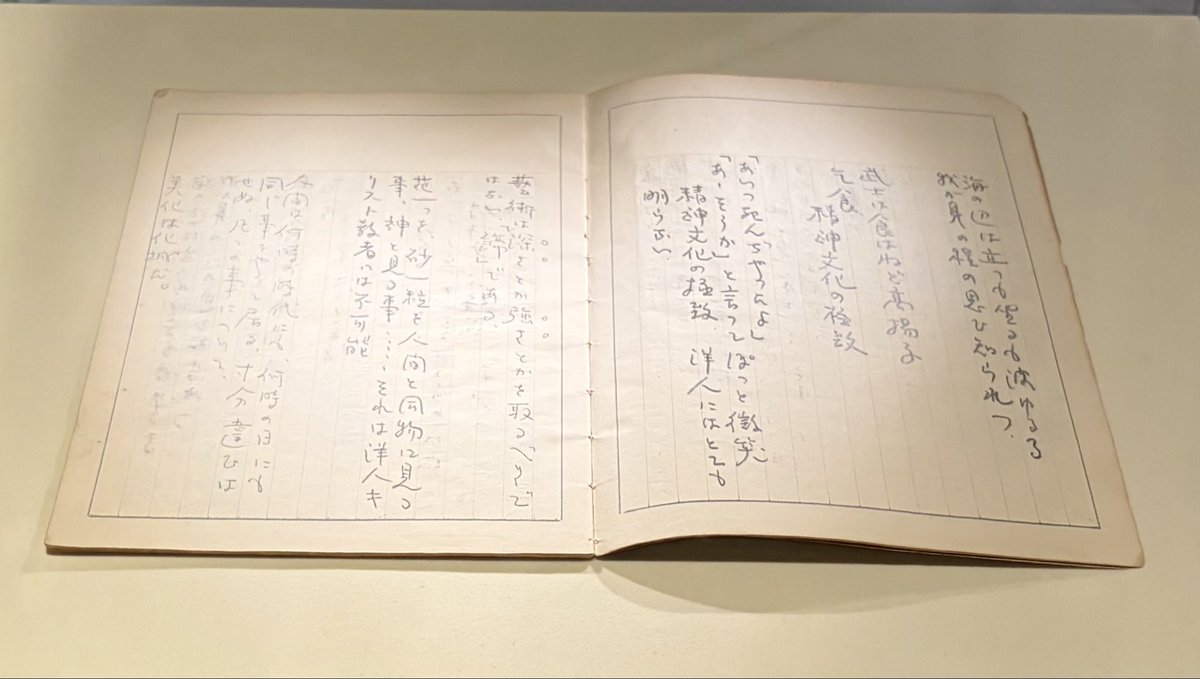 海の辺は立つも坐るも波ゆるる
我が身の程の思ひ知られつ
武士は食はねど高揚子
乞食
精神文化の極致
「あいつ死んぢやつたよ」
「あーそうか」と言つてぽつと微笑
精神文化の極致 洋人にはとても
判らない
藝術は深さとか強さとかを取るべきで
はない「諦」である。
花一つを、砂一粒を人間と同物に見る
事、神と見る事……それは洋人キ
リスト教者には不可能
人間は何時の時代にも何時の日にも
同じ事をやつて居る、十分違ひは
せぬ の事について、
美化は